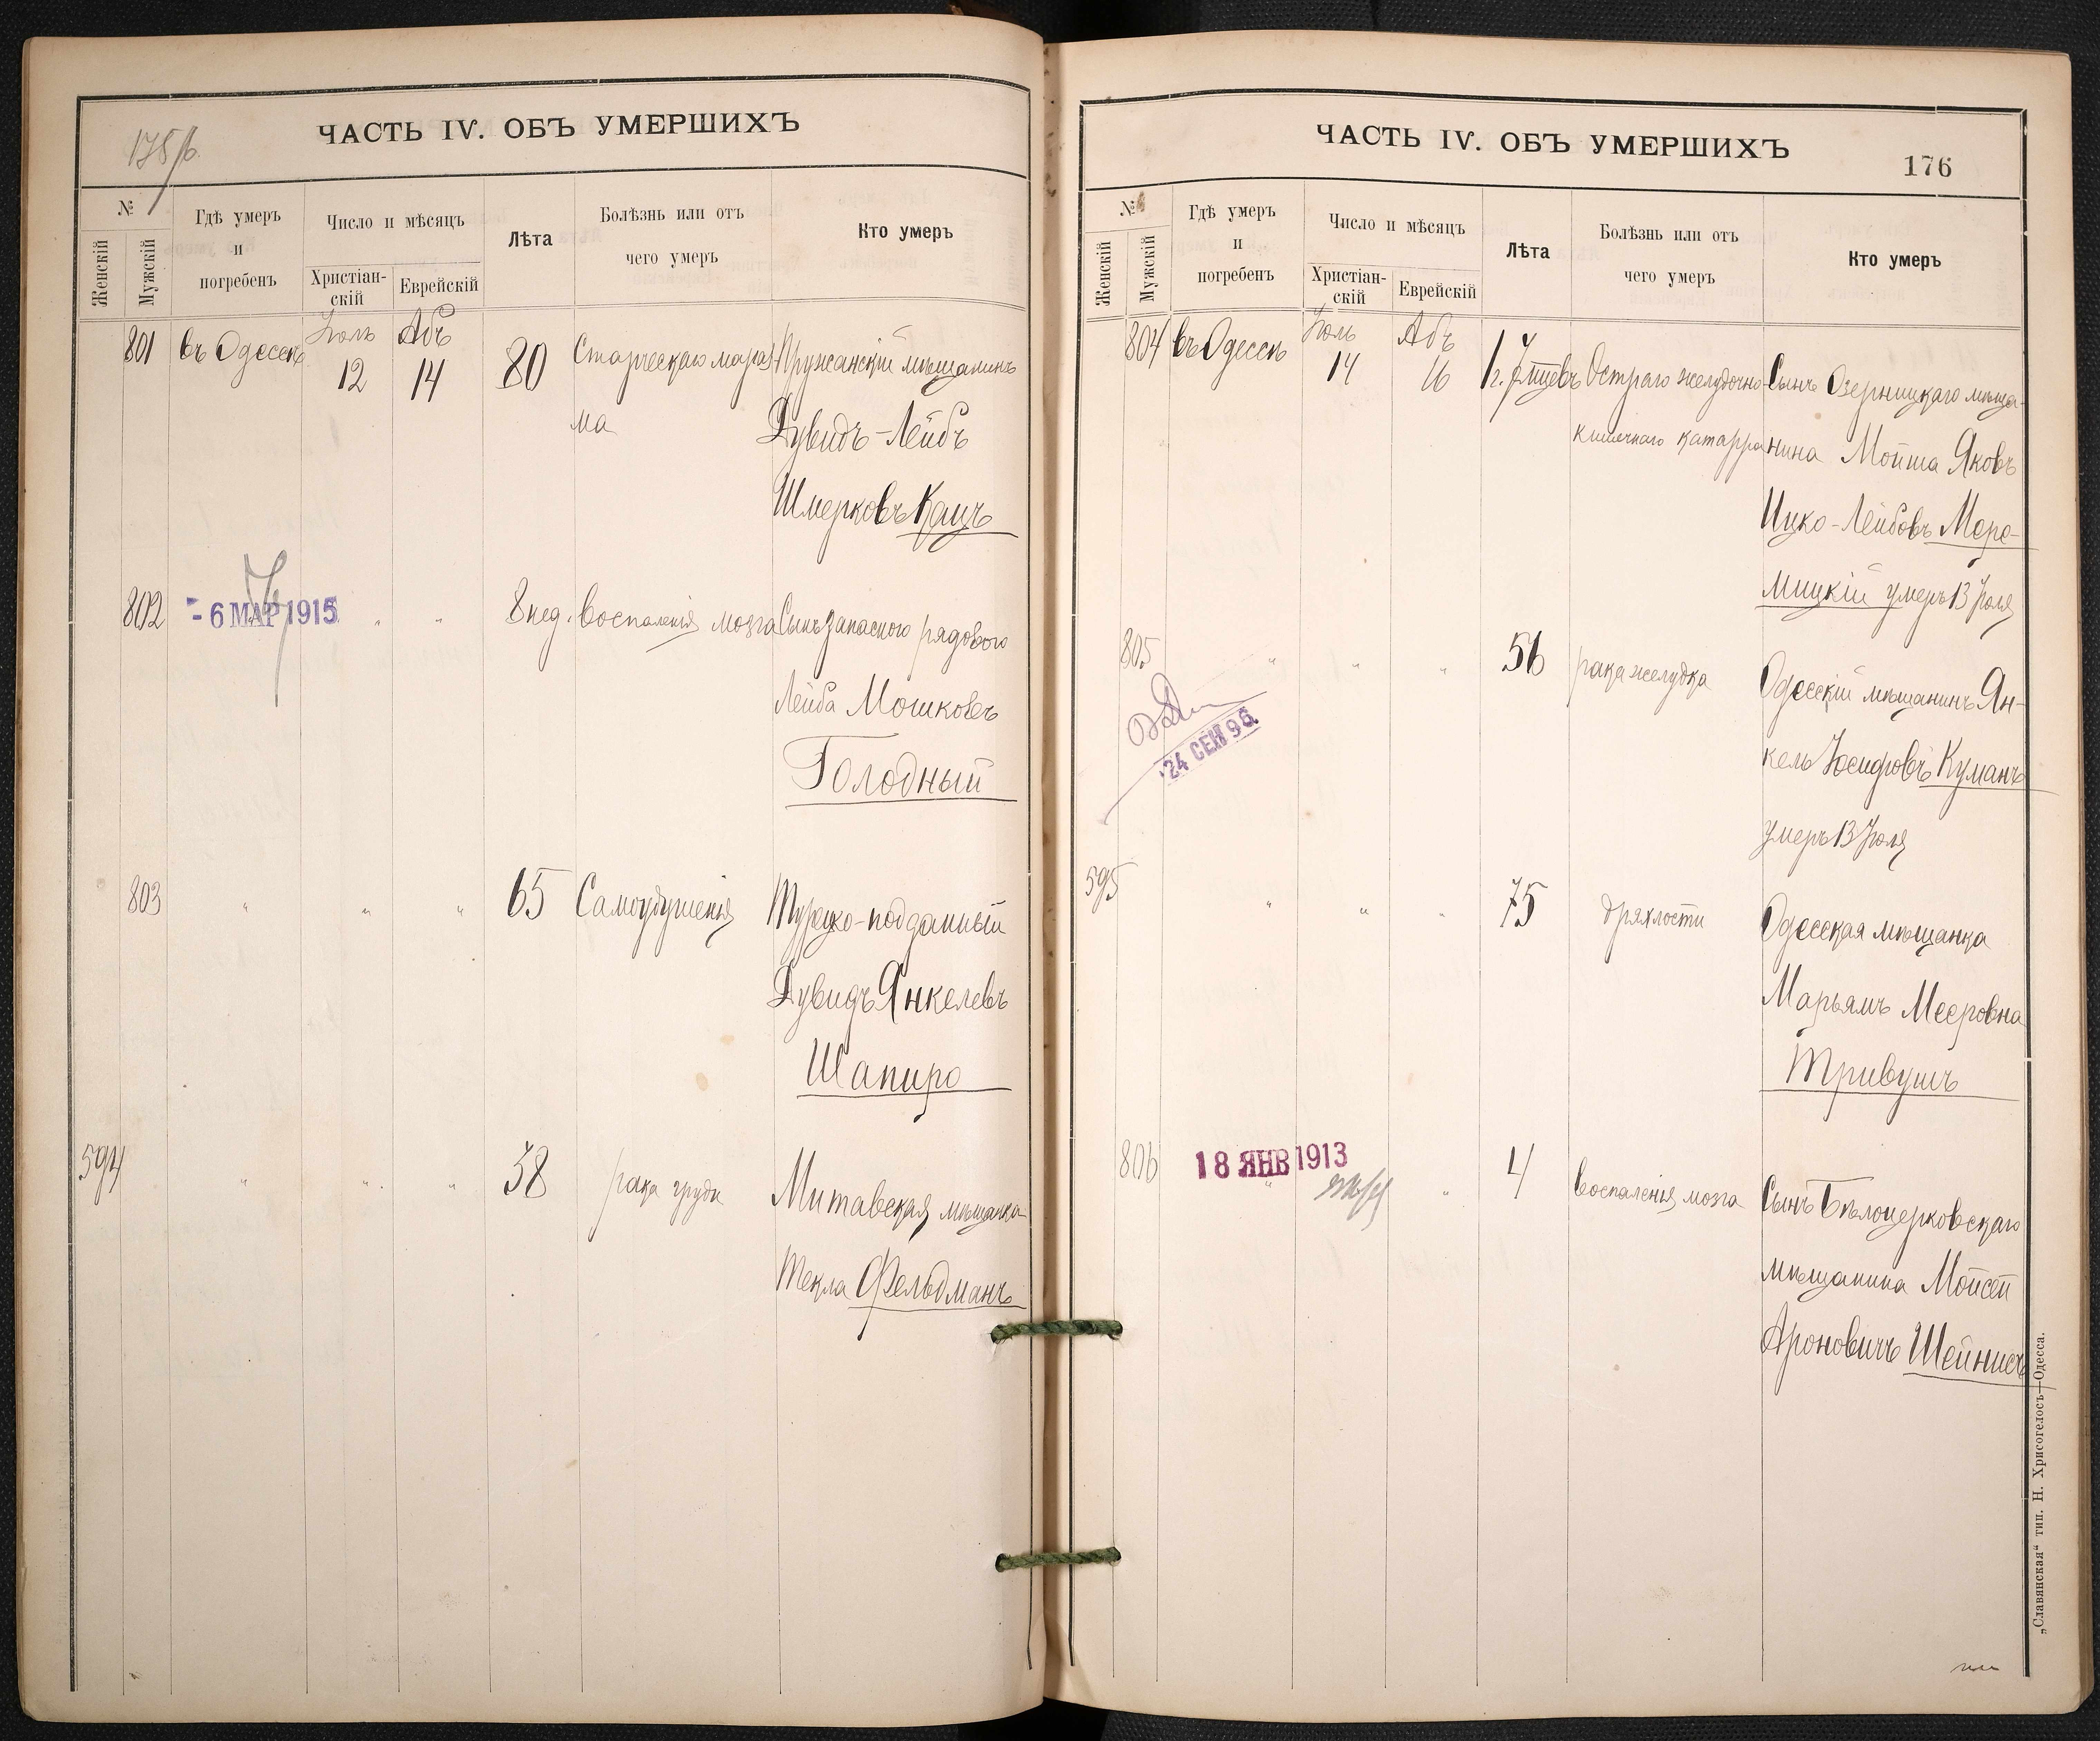 175/б.
ЧАСТЬ IV. ОБЪ УМЕРШИХЪ
№
Женскій
Мужскій
Гдѣ умеръ
и
погребенъ
Число и мѣсяцъ
Христіан-
скій
Еврейскій
Лѣта
Болѣзнь или отъ
чего умеръ
Кто умеръ
801 въ Одессѣ Іюль 12 Абъ 14 80 Старческаго мараз Пружанскій мѣщанинъ
ма Дувидъ-Лейбъ
Шмерковъ Кацъ
802 - 6 МАР 1915 " " 8 нед. Воспаленія мозга Сынъ запаснаго рядового
Лейба Мошковъ
Голодный
803 " " " 65 Самоудушенія Турецко-подданный
Дувидъ Янкелевъ
Шапиро
594 " " " 58 рака груди Митавская мѣщанка
Текла Фельдманъ
ЧАСТЬ IV. ОБЪ УМЕРШИХЪ
176
№
Женскій
Мужскій
Гдѣ умеръ
и
погребенъ
Число и мѣсяцъ
Христіан-
скій
Еврейскій
Лѣта
Болѣзнь или отъ
чего умеръ
Кто умеръ
804 въ Одессѣ Іюль 14 Абъ 16 1 г. Остраго желудочно Сынъ Озерницкаго мѣща-
кишечнаго катарра нина Мойша Яковъ
Ицко-Лейбовъ Мере-
мицкій умеръ 13 Іюля
805 " " " 56 рака желудка Одесскій мѣщанинъ Ян-
24 СЕН 96
кель Іосифовъ Куманъ
умеръ 13 Іюля
595 " " " 75 дряхлости Одесская мѣщанка
Марьямъ Мееровна
Тривушъ
806 18 ЯНВ 1913 " " 4 воспаленія мозга Сынъ Бѣлоцерковскаго
мѣщанина Мойсей
Ароновичъ Шейнисъ
„Славянская“ тип. Н. Хрисогелосъ—Одесса.